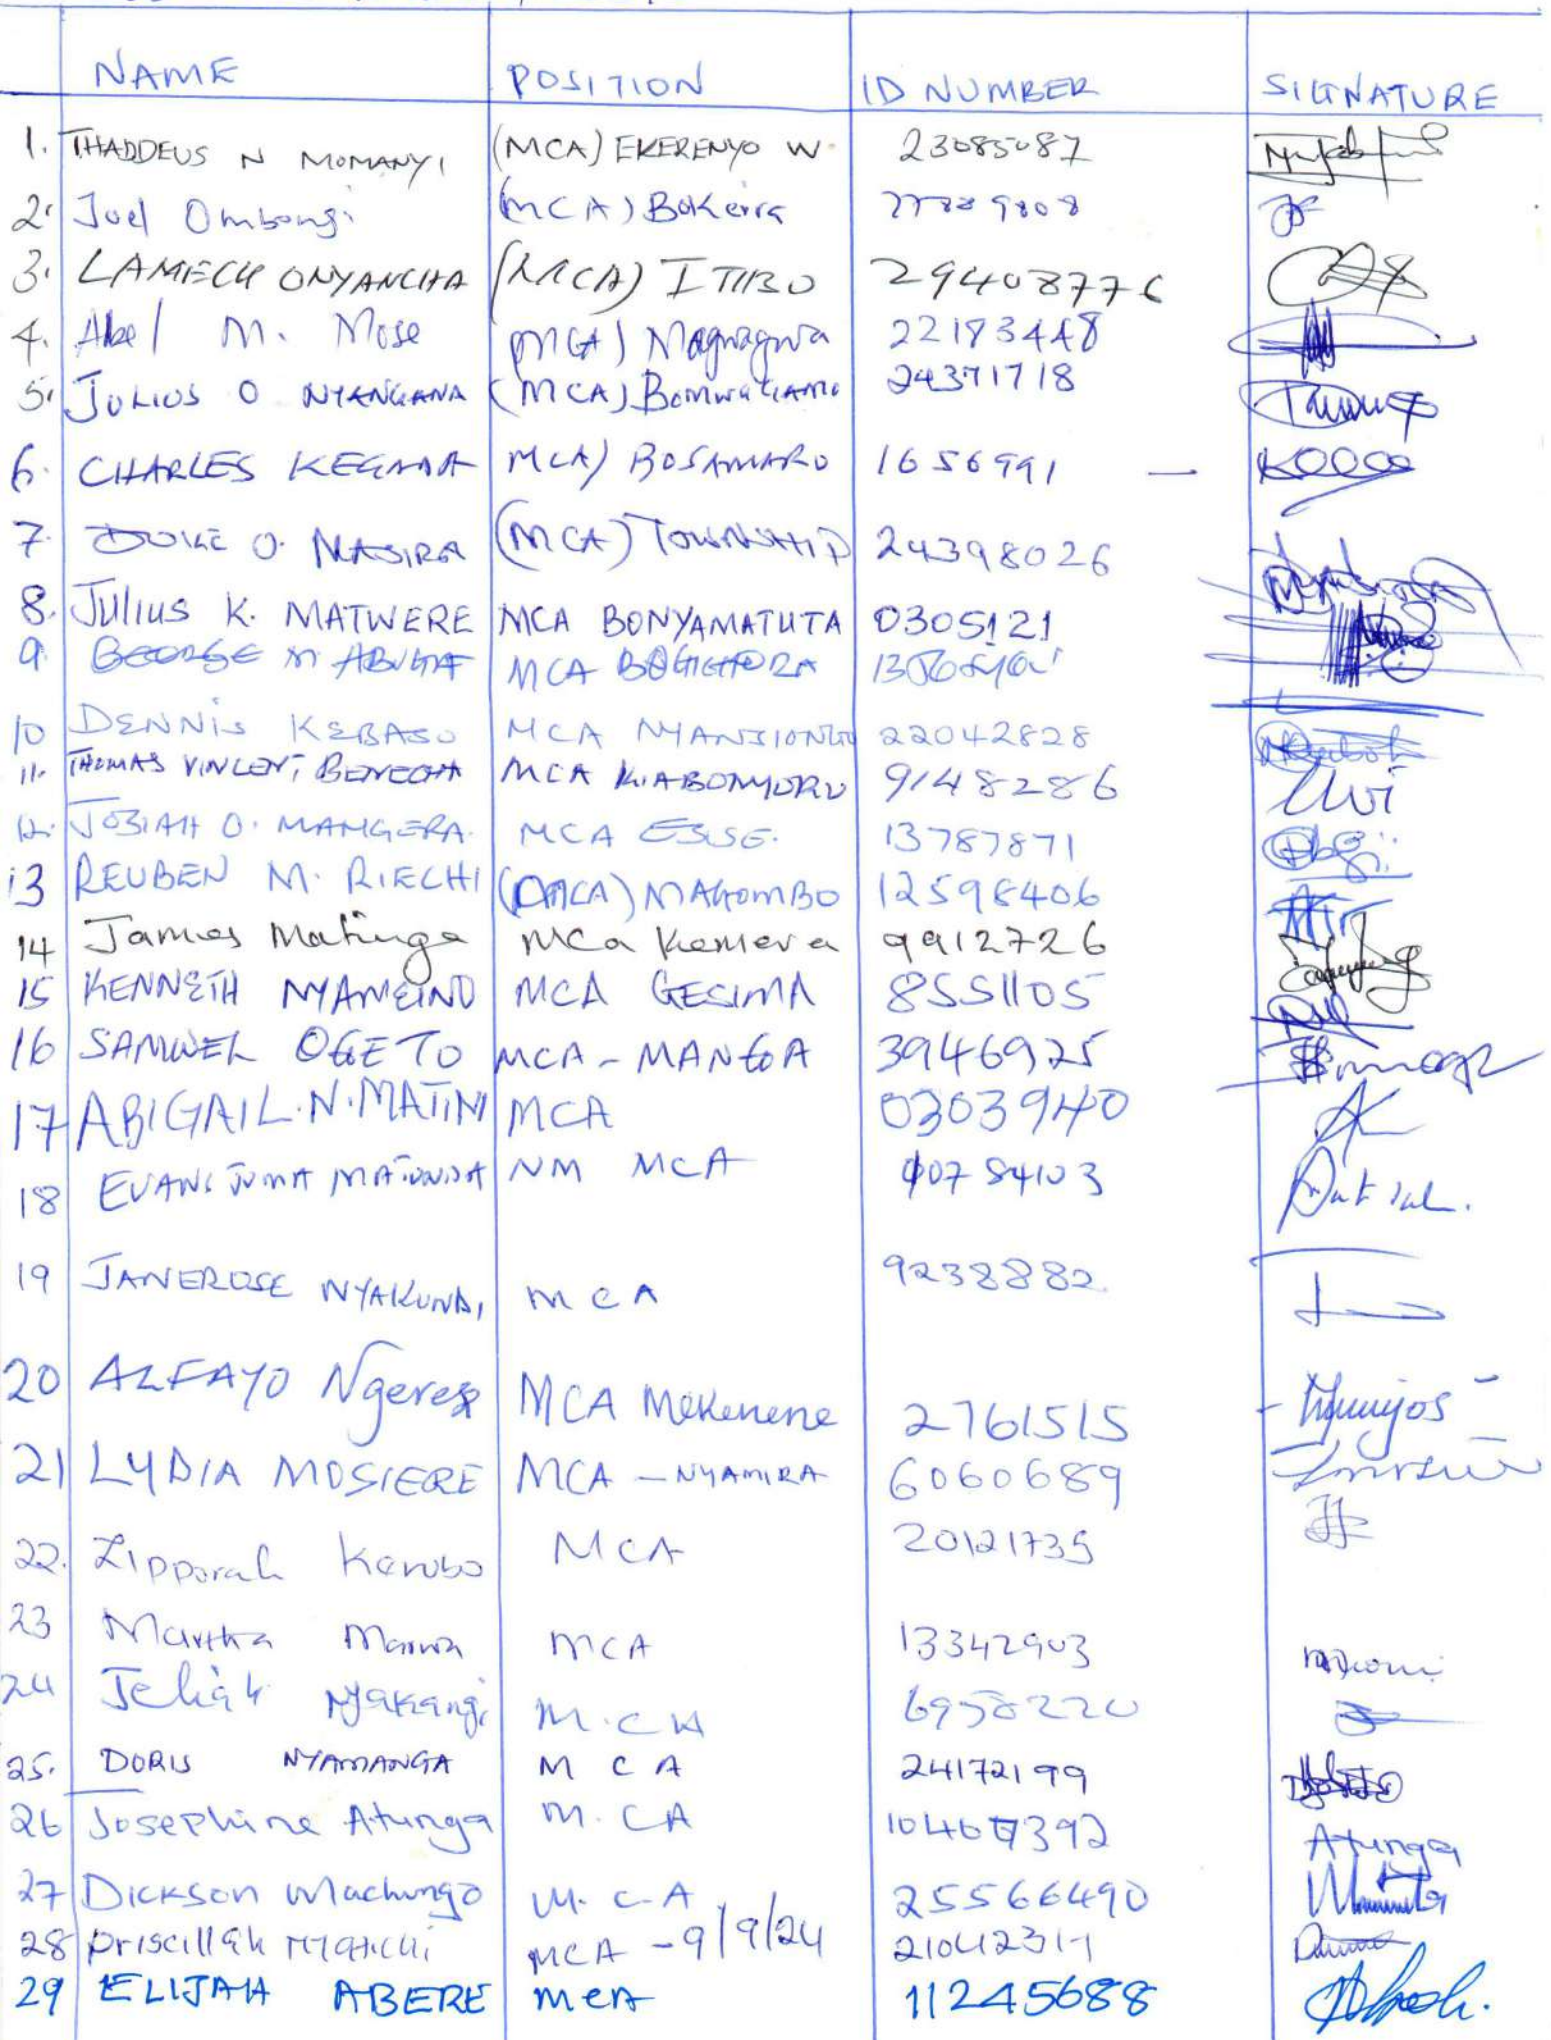 NAME POSITION ID NUMBER SIGNATURE
1. THADDEUS N MOMANYI (MCA) EKERENYO W. 23085087
2. Joel Ombongi (MCA) Bokeira
3. LAMECH ONYANCHA (MCA) ITIBO 29408776
4. Abel M. Mose (MCA) Magwagwa 22183448
5. JULIUS O NYANGANA (MCA) 24371718
6. CHARLES MCA) BOSAMARO 1656991 —
7. DUKE O. MASIRA (MCA) TOWNSHIP 24398026
8. JULIUS K. MATWERE MCA BONYAMATUTA 0305121
9. GEORGE M ABUGA MCA BOGICHORA
10 DENNIS KEBASO MCA NYANSIONGO 22042828
11. THOMAS VINCENT MCA KIABONYORU 9148286
12. JOSIAH O. MANGERA. MCA ESISE. 13787871
13 REUBEN M. RIECHI (MCA) MAGOMBO 12598406
14 James Matinga MCa Kemera 9912726
15 KENNETH NYAMEINO MCA GESIMA 8551105
16 SAMWEL OGETO MCA - MANGA 3946925
17 ABIGAIL.N.MATINI MCA 0303940
18 EVANS JUMA MATUNDA NM MCA
19 JANEROSE NYAKUNDI MCA 9238882.
20 ALFAYO Ngeresa MCA Mekenene 2761515
21 LYDIA MOSIERE MCA - NYAMIRA 6060689
22. Zipporah Kerubo MCA 20121735
23 Martha MCA 13342903
24 Nyakangi M.CA 6958220
25. DORIS NYAMANGA M C A 24172199
26 Josephine Atunga M. CA Atunga
27 Dickson Machungo M. C-A 25566490
28 Priscillah MCA - 9/9/24
29 ELIJAH ABERE MCA 11245688